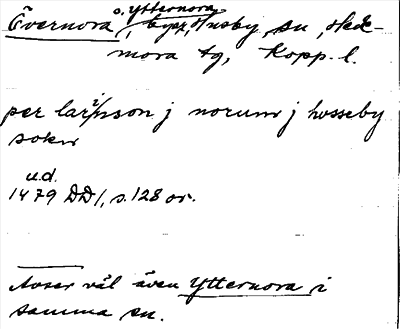 o. Ytternora
Övernora, Husby sn, Hede-
mora tg, Kopp. l.
per larisson j norum j hosseby
sokn
u.d.
1479 DD1, s. 128 or.
Avser väl även Ytternora i
samma sn.